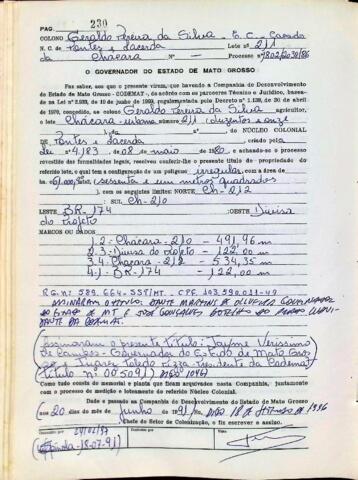 PAG. 230
COLONO Geraldo Pereira da Silva - E. C. Casado
N. C. de Pontes e Lacerda Lote n.º 211
da Chácara N.º — Processo n.º 7802/2030/86
O GOVERNADOR DO ESTADO DE MATO GROSSO:
Faz saber, aos que o presente virem, que havendo a Companhia de Desenvolvimento
do Estado de Mato Grosso - CODEMAT, de acôrdo com os parceres Técnico e Jurídico, basea-
do na Lei n.º de 10 de junho de regulamentada pelo Decreto n.º 1.138, de 30 de abril
de 1970, concedido, ao colono Geraldo Pereira da Silva agricultor,
o lote Chácara - urbano 211 (duzentos e onze
do NÚCLEO COLONIAL
de Pontes e Lacerda criado pelo
Lei n.º 4.183, de 08 de maio de 1980, e achando-se o processo
revestido das formalidades legais, resolveu conferir-lhe o presente título de propriedade do
referido lote, o qual tem a configuração de um polígono irregular, com a área
de 61.000 (sessenta e um metros quadrados
) com os seguintes limites: NORTE Ch-212
SUL Ch-210
LESTE BR-174 OESTE Divisa
do Projeto
MARCOS OU LADOS
1.2 - Chácara - 210 - 491,96 m
2.3 - Divisa do Projeto - 122,00 m
3.4 - Chácara - 212 - 534,35 m
4.1 - BR-174 - 122,00 m
R.G. nº 589.664 - SSP/MT. - CPF. 103.590.011-49
ASSINARAM O TITULO: DANTE MARTINS DE OLIVEIRA GOVERNADOR
DO ESTADO DE MT E JOSÉ GONÇALVES BOTELHO DO PRADO LIQUI-
DANTE DA CODEMAT.
(assinaram o presente título: Jayme Verissimo
de Campos - Governador do Estado de Mato Gros
so e Juarez Toledo Pizza - Presidente da Codemat)
(Título nº 00.509)
Como tudo consta do memorial e planta que ficam arquivados nesta Companhia, juntamente
com o processo de medição e loteamento do referido Núcleo Colonial.
Dado e passado na Companhia de Desenvolvimento do Estado de Mato Grosso
aos 20 dias do mês de junho de 1991
Chefe do Setor de Colonização, o fiz escrever e assino.
18-07-91)